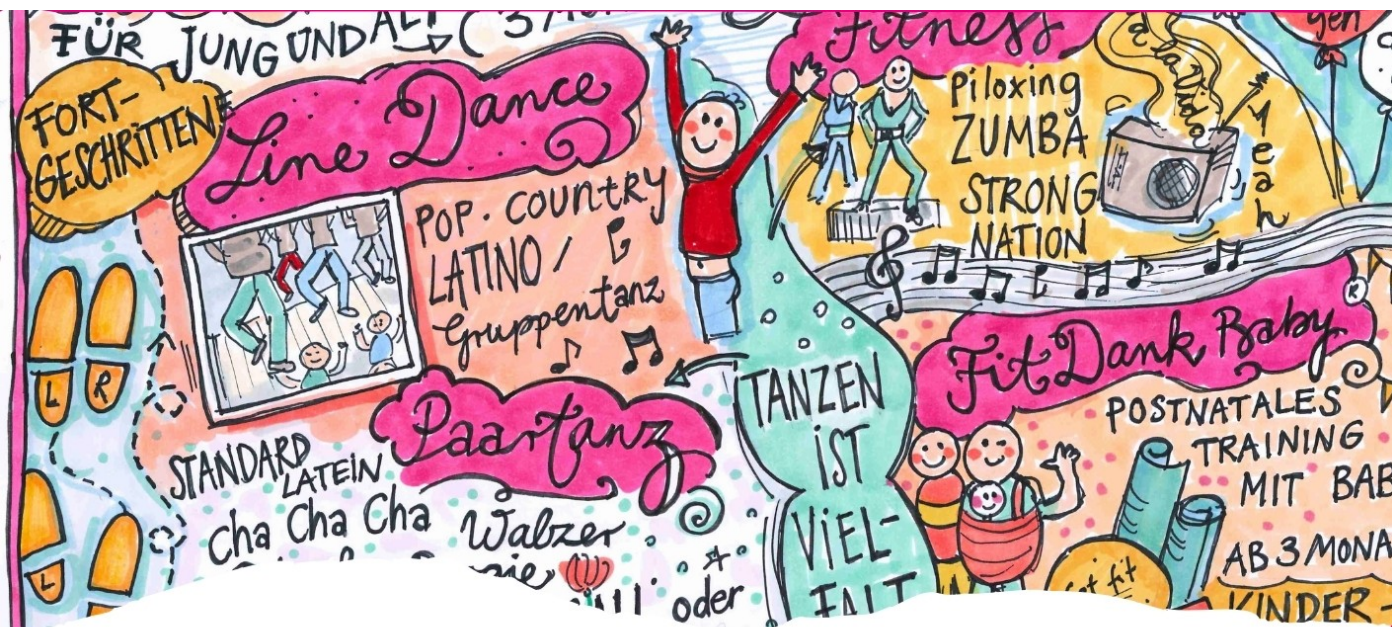 FÜR
JUNG UND ALT
FORT-
GESCHRITTENE
Line Dance
POP. COUNTRY
LATINO /
Gruppentanz
L R
L
Paartanz
STANDARD
LATEIN
cha Cha Cha
Walzer
oder
TANZEN
IST
VIEL-
FALT
Fitness
Piloxing
ZUMBA
STRONG
NATION
Yeah
FitDank Baby
R
POSTNATALES
TRAINING
MIT BAB
AB 3 MONA
fit
KINDER-